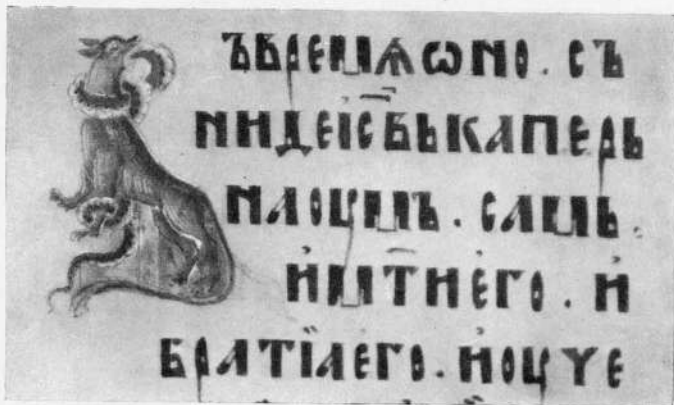 ВЪВРЕМѦѠНО. СЪ
НИДЕІС҃ВЬКАПЕРЬ
НАОУМЪ. САМЬ.
ИМТ҃ИЕГО. И
БРАТЇАЕГО. ИОУЧЕ